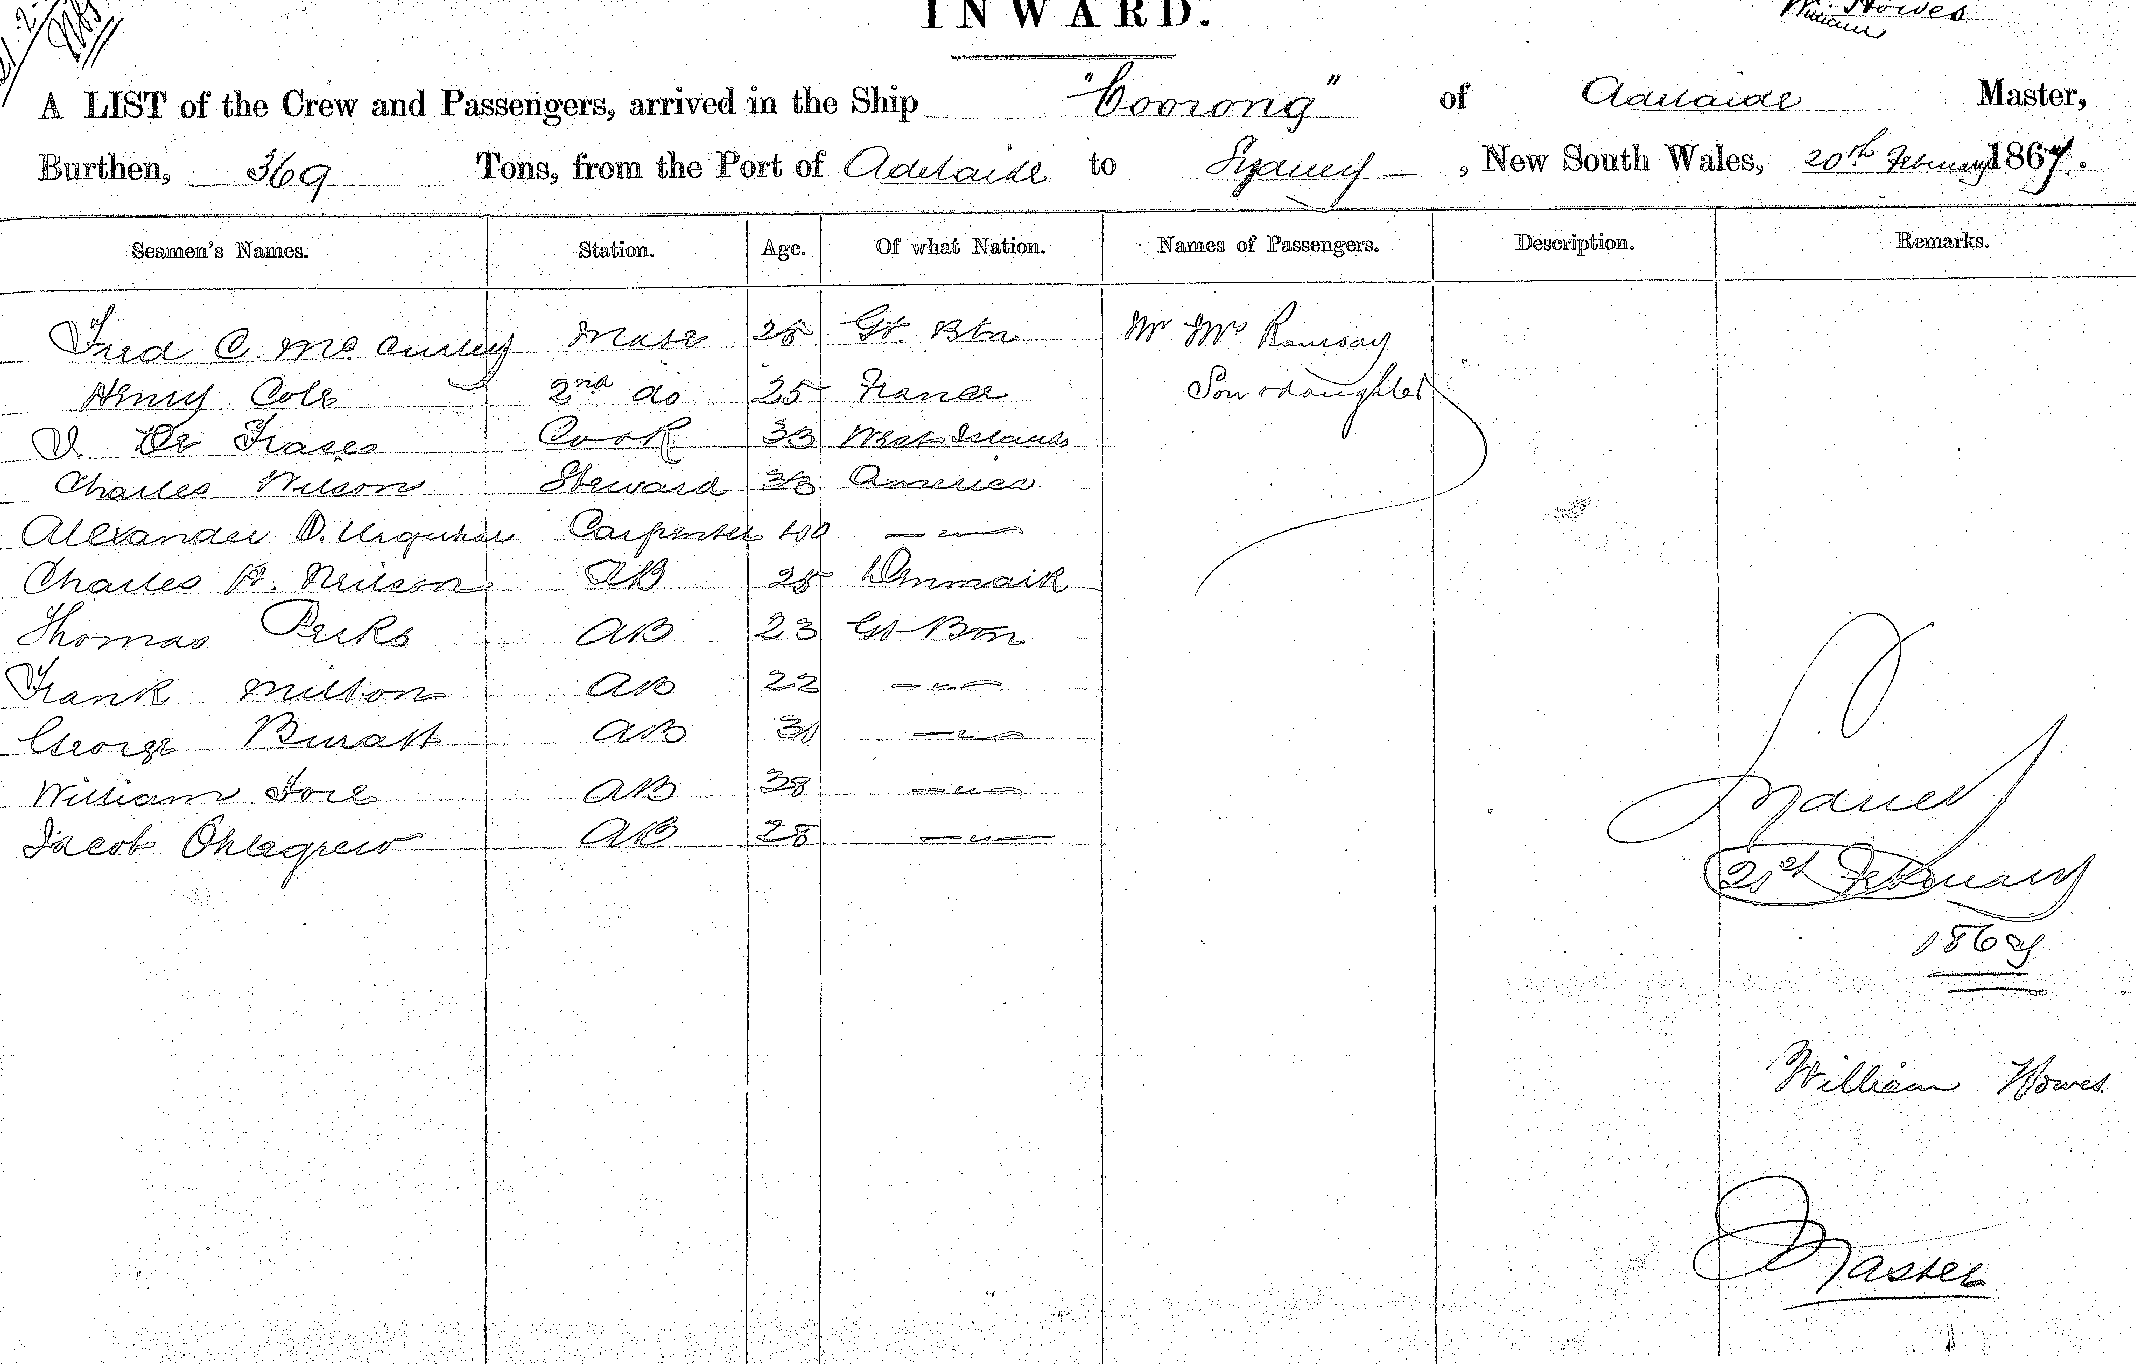 INWARD.
Howes
William
A LIST of the Crew and Passengers, arrived in the Ship "Coorong" of Adelaide Master,
Burthen, 369 Tons, from the Port of Adelaide to Sydney , New South Wales, 20th February 1867.
Seamen's Names. Station. Age. Of what Nation. Names of Passengers. Description. Remarks.
Fred C. Mc Mate 28 Gt. Btn Mr Mrs Ramsay
Henry Cole 2nd do 25 France Son & daughter
De Cook 33 West Islands
Charles Wilson Steward 33 America
Alexander D. Urquhart Carpenter 40 — " —
Charles Neilson AB 28 Denmark
Thomas Perks AB 23 Gt Btn
Frank Milton AB 22 — " —
George AB 30 — " —
William AB 28 — " —
Jacob AB 28 — " —
Sydney
21st February
1867
William Howes
Master